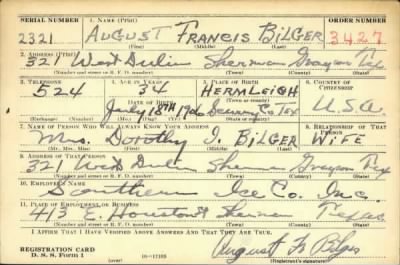 SERIAL NUMBER 1. NAME (Print) ORDER NUMBER
2321 AUGUST FRANCIS BILGER 3427
(First) (Middle) (Last)
2. ADDRESS (Print)
321 West Dulin Sherman Grayson Tex
(Number and street or R. F. D. number) (Town) (County) (State)
3. TELEPHONE 4. AGE IN YEARS 5. PLACE OF BIRTH 6. COUNTRY OF CITIZENSHIP
524 34 HERMLEIGH
DATE OF BIRTH (Town or county)
July 18th 1906 Scurry Co Tex U.S.A.
(Mo.) (Day) (Yr.) (State or country)
7. NAME OF PERSON WHO WILL ALWAYS KNOW YOUR ADDRESS 8. RELATIONSHIP OF THAT PERSON
Mrs. Dorothy J. BILGER WIFE
(Mr., Mrs., Miss) (First) (Middle) (Last)
9. ADDRESS OF THAT PERSON
321 West Dulin Sherman Grayson Tex
(Number and street or R. F. D. number) (Town) (County) (State)
10. EMPLOYER'S NAME
Southern Ice Co. Inc.
11. PLACE OF EMPLOYMENT OR BUSINESS
413 E. Houston St Sherman Texas
(Number and street or R. F. D. number) (Town) (County) (State)
I AFFIRM THAT I HAVE VERIFIED ABOVE ANSWERS AND THAT THEY ARE TRUE.
REGISTRATION CARD
D. S. S. Form 1 (over) 16—17105 August F. Bilger
(Registrant's signature)